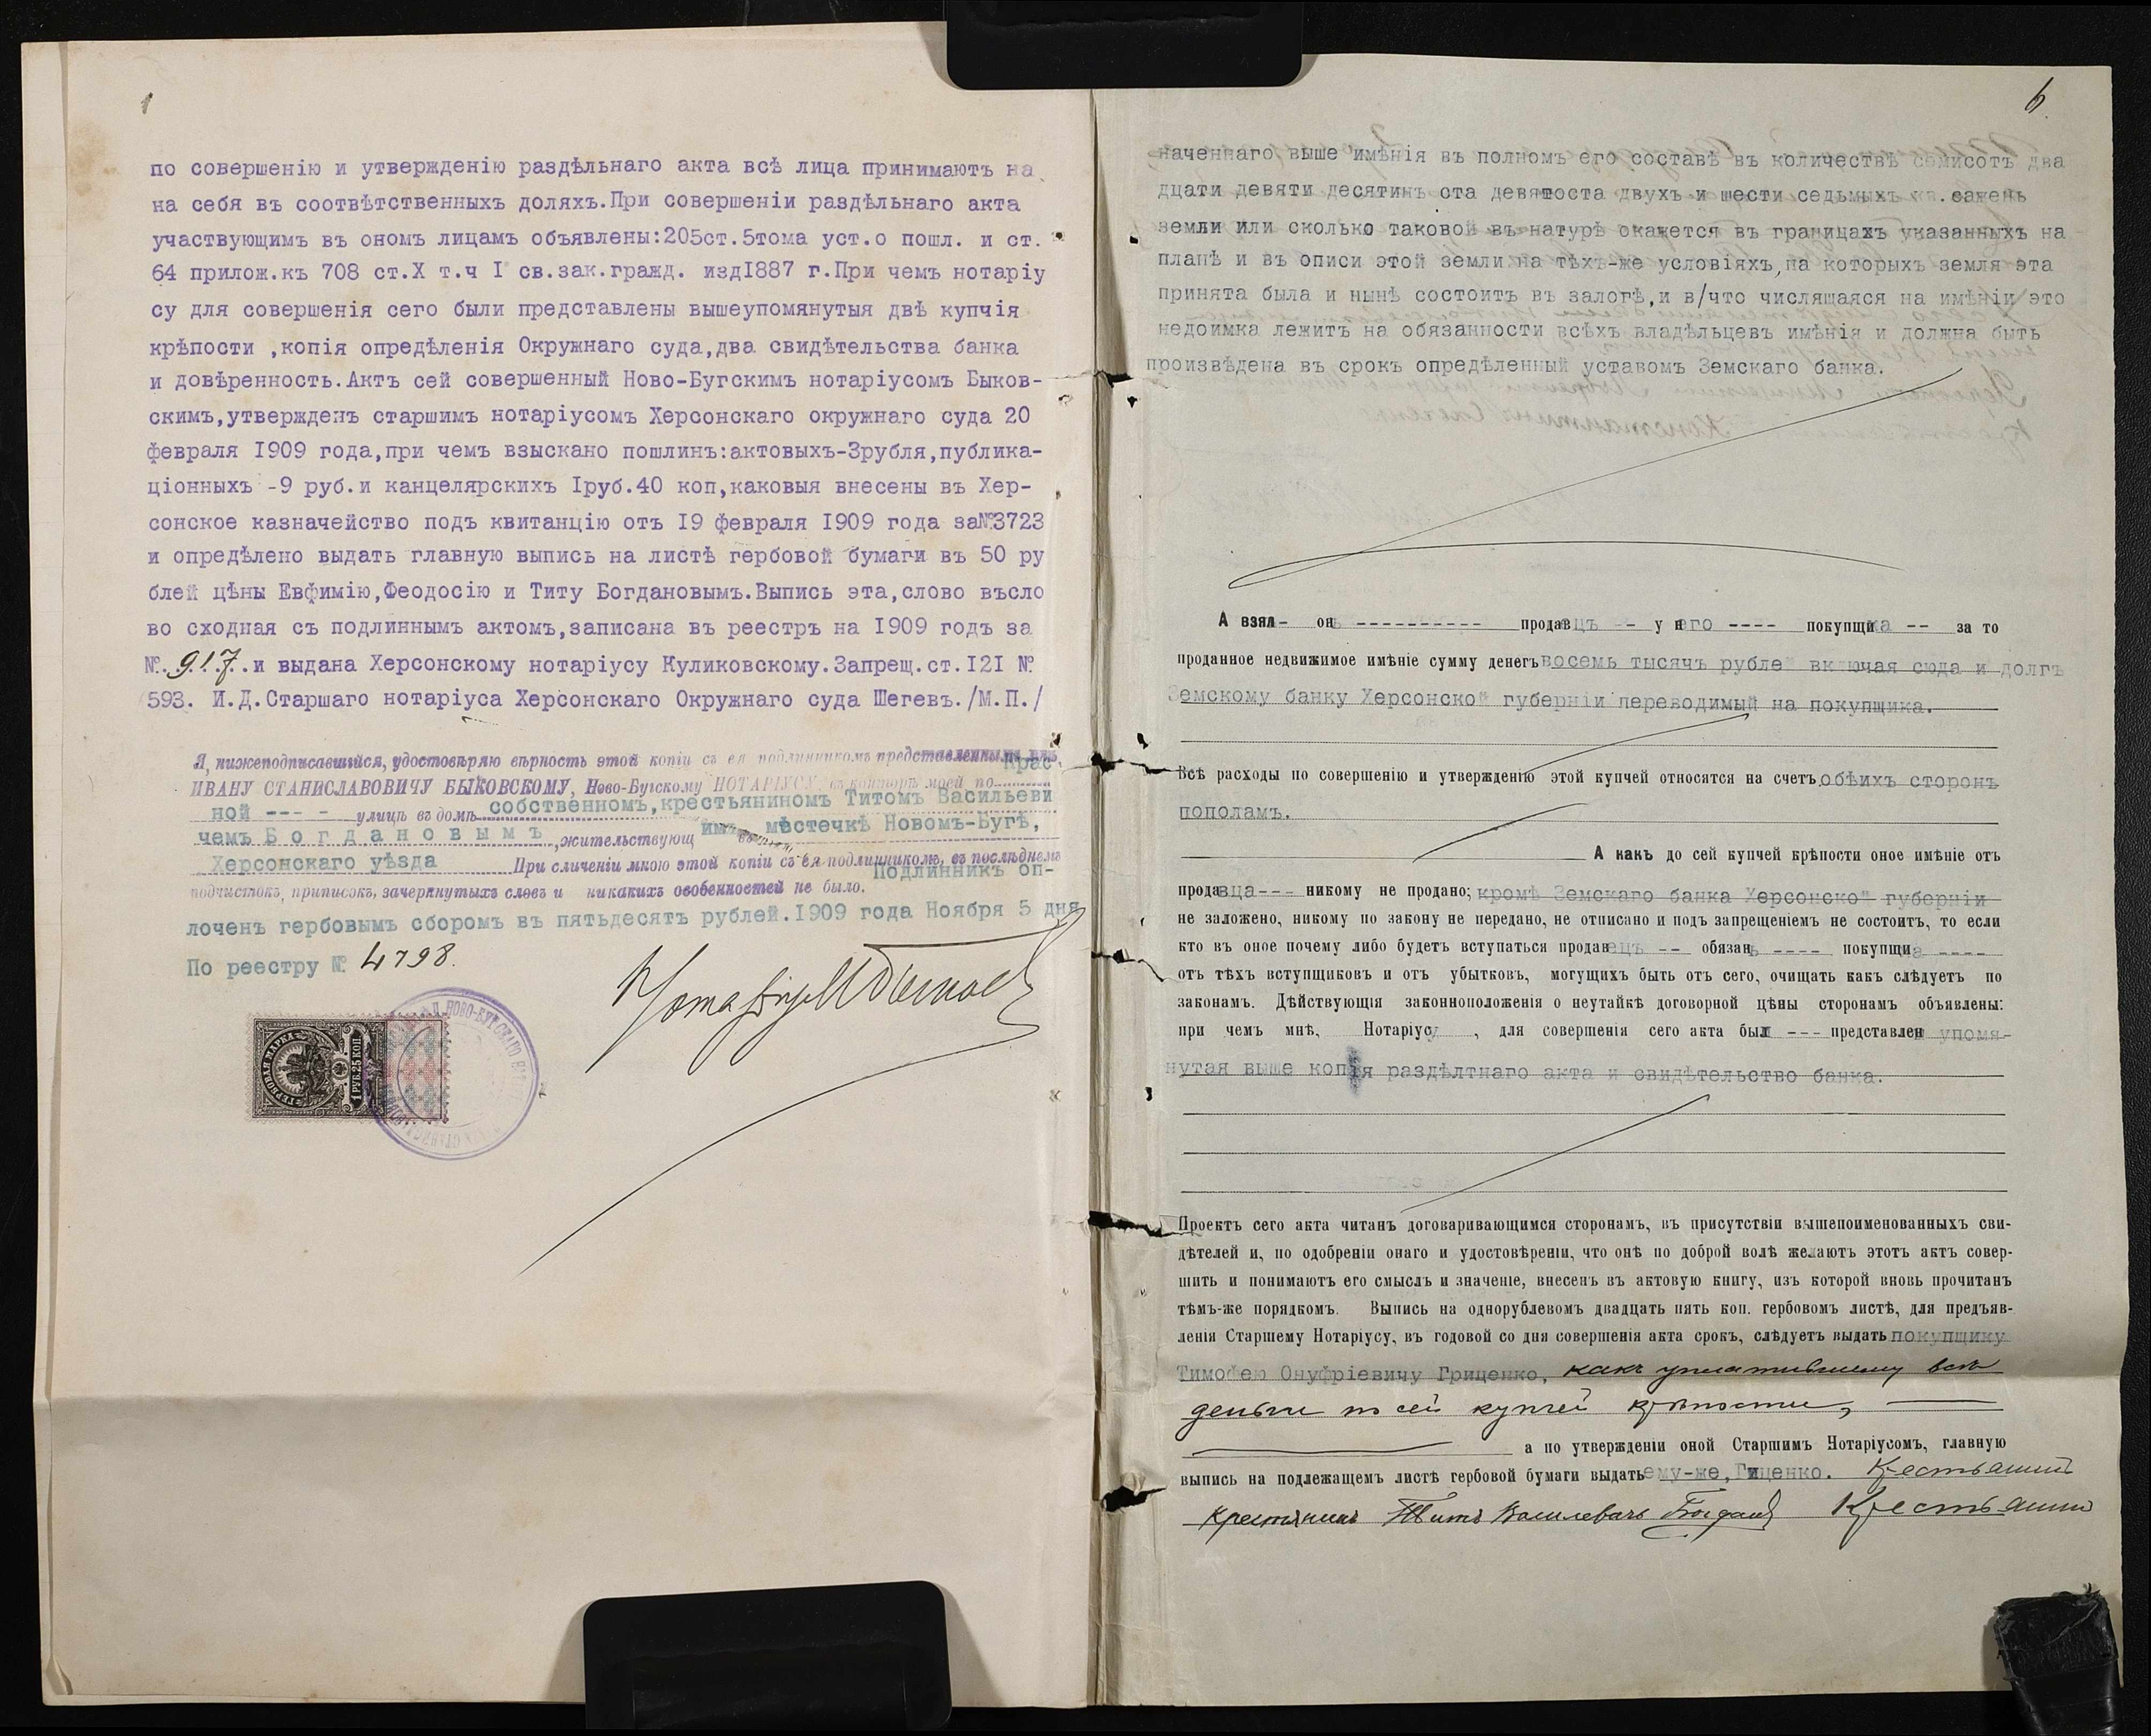 по совершенію и утвержденію раздѣльнаго акта всѣ лица принимаютъ на
на себя въ соотвѣтственныхъ доляхъ.При совершеніи раздѣльнаго акта
участвующимъ въ ономъ лицамъ объявлены:205ст.5тома уст.о пошл. и ст.
64 прилож.къ 708 ст.X т.ч I св.зак.гражд. издI887 г.При чемъ нотаріу
су для совершенія сего были представлены вышеупомянутыя двѣ купчія
крѣпости ,копія опредѣленія Окружнаго суда,два свидѣтельства банка
и довѣренность.Актъ сей совершенный Ново-Бугскимъ нотаріусомъ Быков-
скимъ,утвержденъ старшимъ нотаріусомъ Херсонскаго окружнаго суда 20
февраля I909 года,при чемъ взыскано пошлинъ:актовыхъ-3рубля,публика-
ціонныхъ -9 руб.и канцелярскихъ Iруб.40 коп,каковыя внесены въ Хер-
сонское казначейство подъ квитанцію отъ I9 февраля I909 года за№3723
и опредѣлено выдать главную выпись на листѣ гербовой бумаги въ 50 ру
блей цѣны Евфимію,Феодосію и Титу Богдановымъ.Выпись эта,слово въсло
во сходная съ подлиннымъ актомъ,записана въ реестръ на I909 годъ за
№.917..и выдана Херсонскому нотаріусу Куликовскому.Запрещ.ст.I2I №
593. И.Д.Старшаго нотаріуса Херсонскаго Окружнаго суда Шегевъ./М.П./
Я, нижеподписавшійся, удостовѣряю вѣрность этой копіи съ ея подлинникомъ представленнымъ мнѣ,
ИВАНУ СТАНИСЛАВОВИЧУ БЫКОВСКОМУ, Ново-Бугскому НОТАРІУСУ въ конторѣ моей по Крас-
ной --- - улицѣ въ домѣ собственномъ,крестьяниномъ Титомъ Васильеви
чемъ Б о г д а н о в ы м ъ ,жительствующ имъ въ мѣстечкѣ Новомъ-Бугѣ,
Херсонскаго уѣзда При сличеніи мною этой копіи съ ея подлинникомъ, въ послѣднемъ
подчистокъ, приписокъ, зачеркнутыхъ словъ и никакихъ особенностей не было. Подлинникъ оп-
лоченъ гербовымъ сборомъ въ пятьдесятъ рублей.I909 года Ноября 5 дня
По реестру № 4798.
ГЕРБОВАЯ МАРКА
1 РУБ. 25 КОП.
6
наченнаго выше имѣнія въ полномъ его составѣ въ количествѣ семисотъ два
дцати девяти десятинъ ста девяноста двухъ и шести седьмыхъ кв.сажень
земли или сколько таковой въ натурѣ окажется въ границахъ указанныхъ на
планѣ и въ описи этой земли на тѣхъ-же условіяхъ,на которыхъ земля эта
принята была и нынѣ состоитъ въ залогѣ,и в/что числящаяся на имѣніи это
недоимка лежитъ на обязанности всѣхъ владѣльцевъ имѣнія и должна быть
произвѣдена въ срокъ опредѣленный уставомъ Земскаго банка.
А взял- онъ ---------- продавцъ -- у него ---- покупщика -- за то
проданное недвижимое имѣніе сумму денегъ восемь тысячъ рублей включая сюда и долгъ
Земскому банку Херсонской губерніи переводимый на покупщика.
Всѣ расходы по совершенію и утвержденію этой купчей относятся на счетъ обѣихъ сторонъ
пополамъ.
А какъ до сей купчей крѣпости оное имѣніе отъ
продавца--- никому не продано; кромѣ Земскаго банка Херсонской губерніи
не заложено, никому по закону не передано, не отписано и подъ запрещеніемъ не состоитъ, то если
кто въ оное почему либо будетъ вступаться продавецъ -- обязанъ ---- покупщика ----
отъ тѣхъ вступщиковъ и отъ убытковъ, могущихъ быть отъ сего, очищать какъ слѣдуетъ по
законамъ. Дѣйствующія законноположенія о неутайкѣ договорной цѣны сторонамъ объявлены:
при чемъ мнѣ, Нотаріусу , для совершенія сего акта был --- представлен упомя-
нутая выше копія раздѣлтнаго акта и свидѣтельство банка.
Проектъ сего акта читанъ договаривающимся сторонамъ, въ присутствіи вышепоименованныхъ сви-
дѣтелей и, по одобреніи онаго и удостовѣреніи, что онѣ по доброй волѣ желаютъ этотъ актъ совер-
шить и понимаютъ его смыслъ и значеніе, внесенъ въ актовую книгу, изъ которой вновь прочитанъ
тѣмъ-же порядкомъ. Выпись на однорублевомъ двадцать пять коп. гербовомъ листѣ, для предъяв-
ленія Старшему Нотаріусу, въ годовой со дня совершенія акта срокъ, слѣдуетъ выдать покупщику
Тимофею Онуфріевичу Гриценко, какъ уплатившему всѣ
деньги по сей купчей крѣпости,
а по утвержденіи оной Старшимъ Нотаріусомъ, главную
выпись на подлежащемъ листѣ гербовой бумаги выдать ему-же,Гиценко. Крестьянинъ
Крестянинъ Титъ Василевачъ Богданов Крестьянин